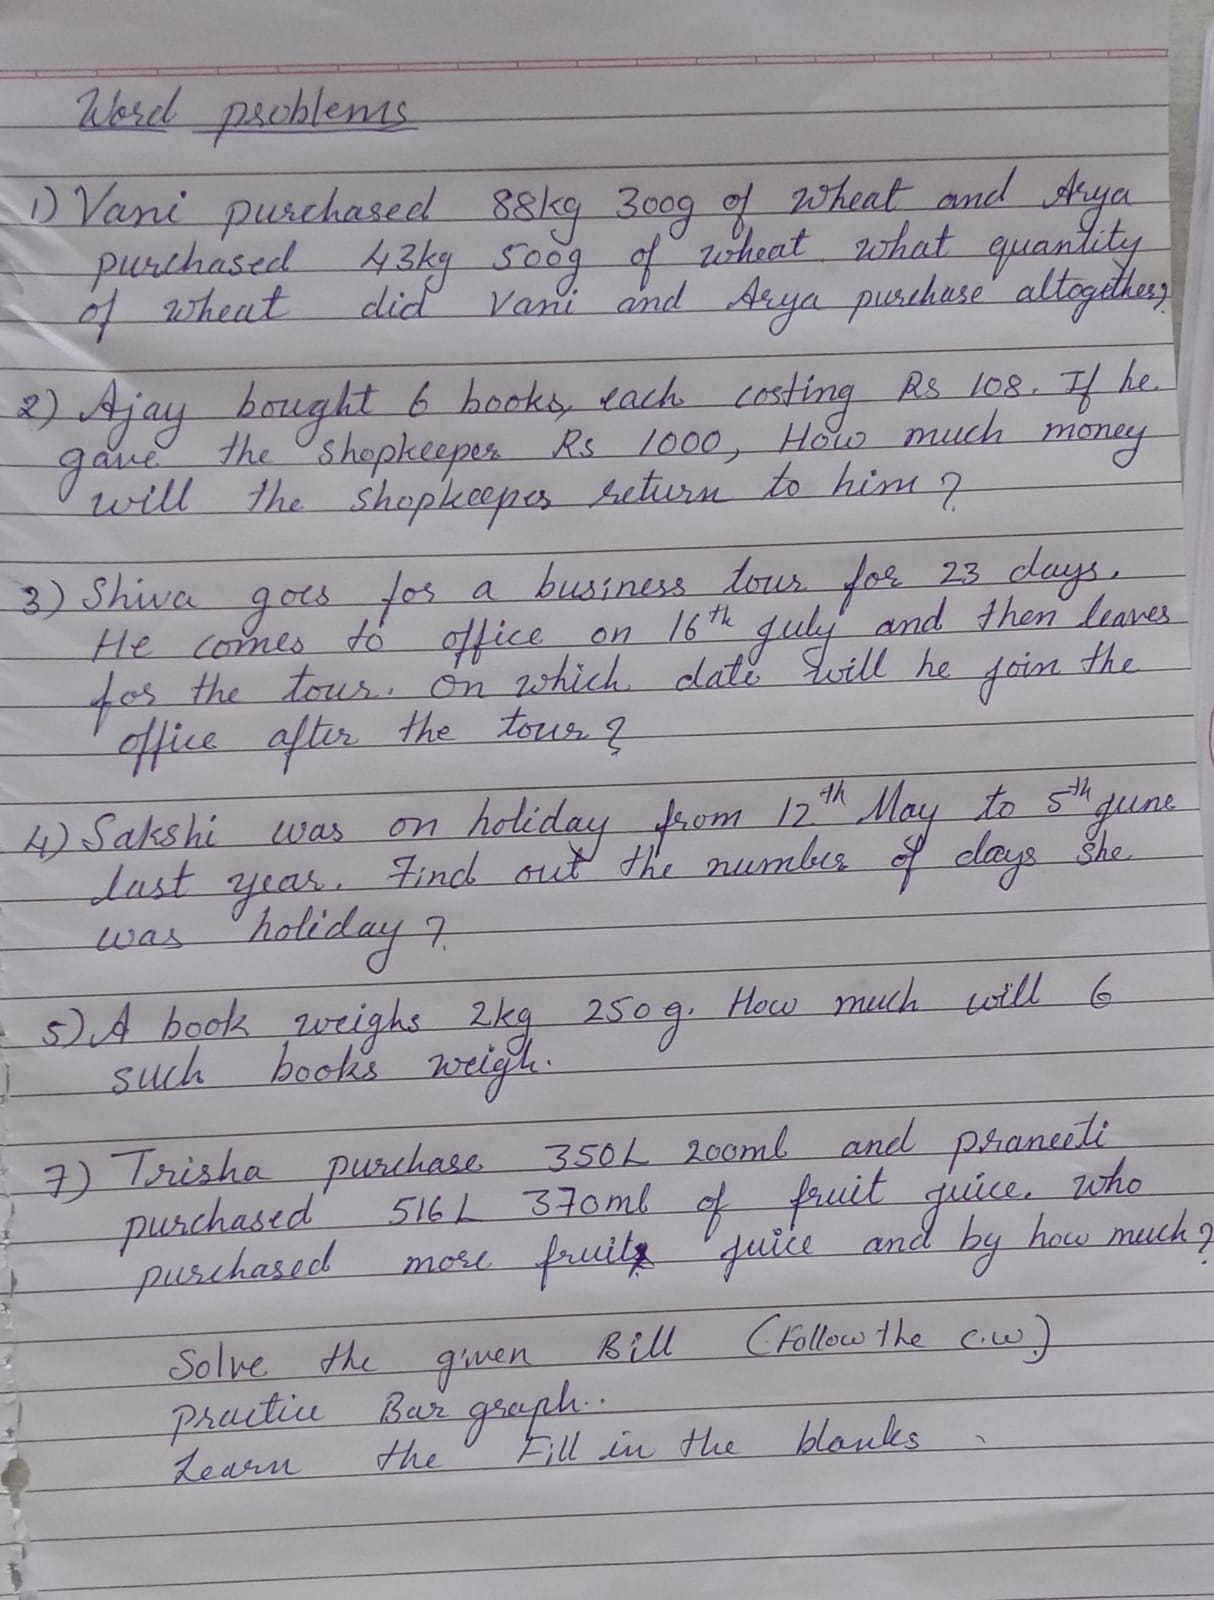 Word problems
1) Vani purchased 88kg 300g of wheat and Arya
purchased 43kg 500g of wheat. what quantity
of wheat did Vani and Arya purchase altogether?
2) Ajay bought 6 books, each costing Rs 108. If he
gave the shopkeeper Rs 1000, How much money
will the shopkeeper return to him?
3) Shiva goes for a business tour for 23 days.
He comes to office on 16th july and then leaves
for the tour. On which date will he join the
office after the tour?
4) Sakshi was on holiday from 12th May to 5th june
last year. Find out the number of days she
was holiday?
5) A book weighs 2kg 250g. How much will 6
such books weigh.
7) Trisha purchase 350L 200ml and praneeti
purchased 516L 370ml of fruit juice. who
purchased more fruit juice and by how much?
Solve the given Bill (Follow the c.w.)
Practice Bar graph..
Learn the Fill in the blanks.